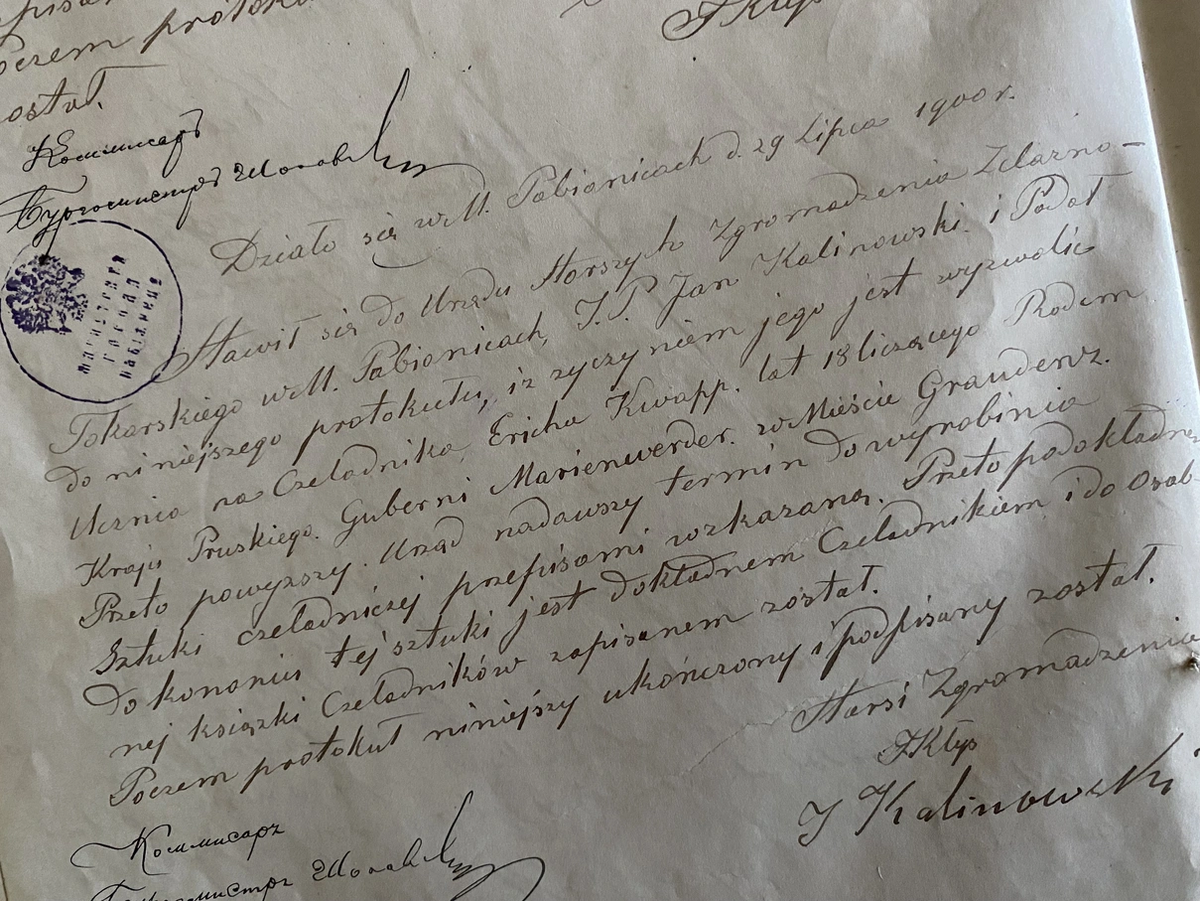 Poczem protoko
został.
F Kłys
Коммисаръ
Бургомистръ
МАГИСТРАТА
ГОРОДА
ПАБIАНИЦЕ
Działo się w M. Pabianicach d. 29 Lipca 1900 r.
Stawił się do Urzędu Starszych Zgromadzenia Zelazno-
Tokarskiego w M. Pabianicach, J. P. Jan Kalinowski. i Podał
do niniejszego protokułu, iż zyczyniem jego jest wyzwolic
Ucznia na Czeladnika, Ericha Kwapp. lat 18 liczącego Rodem
Kraju Pruskiego. Guberni Marienwerder. w Mieście Graudenz.
Przeto powyzszy. Urząd nadawszy termin do wyrobinia
Sztuki czeladniczej przepisami wzkazaną. Przeto po dokładnem
Dokonaniu tej sztuki jest dokładnem Czeladnikiem i do Osob-
nej książki Czeladników zapisanem został.
Poczem protokuł niniejszy ukończony i podpisany został.
Starsi Zgromadzenia
F Kłys
J Kalinowski
Коммисаръ
Бургомистръ